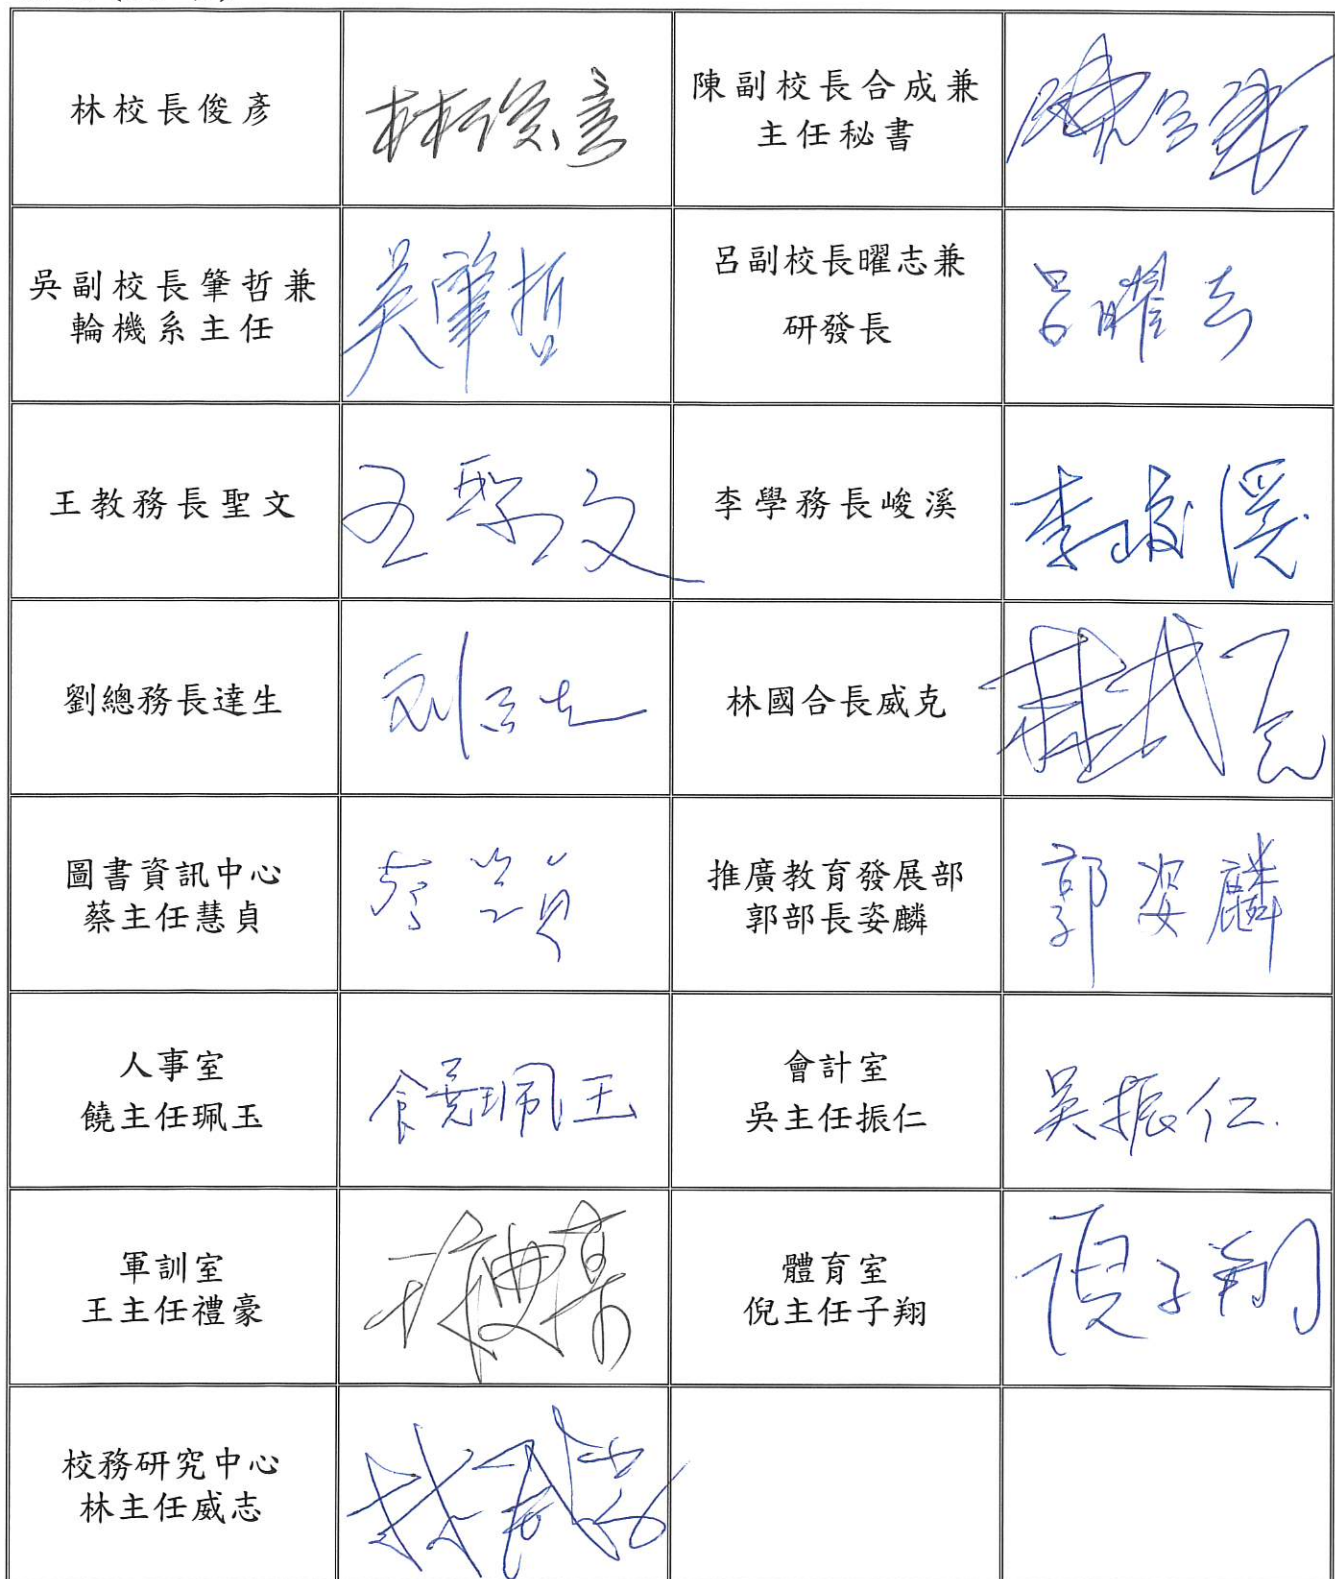 林校長俊彥
林俊彥
陳副校長合成兼
主任秘書
陳合成
吳副校長肇哲兼
輪機系主任
吳肇哲
呂副校長曜志兼
研發長
呂曜志
王教務長聖文
王聖文
李學務長峻溪
李峻溪
劉總務長達生
林國合長威克
圖書資訊中心
蔡主任慧貞
推廣教育發展部
郭部長姿麟
郭姿麟
人事室
饒主任珮玉
饒珮玉
會計室
吳主任振仁
吳振仁
軍訓室
王主任禮豪
體育室
倪主任子翔
倪子翔
校務研究中心
林主任威志